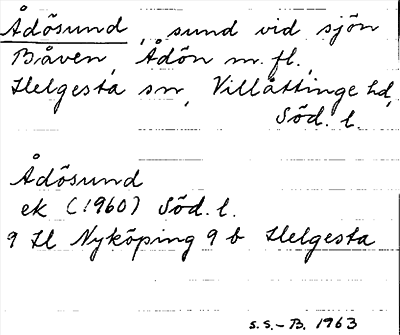 Ådösund, sund vid sjön
Båven, Ådön m.fl.,
Helgesta sn, Villåttinge hd,
Söd. l.
Ådösund
ek (1960) Söd. l.
9 H Nyköping 9 b Helgesta
S.S.-B. 1963